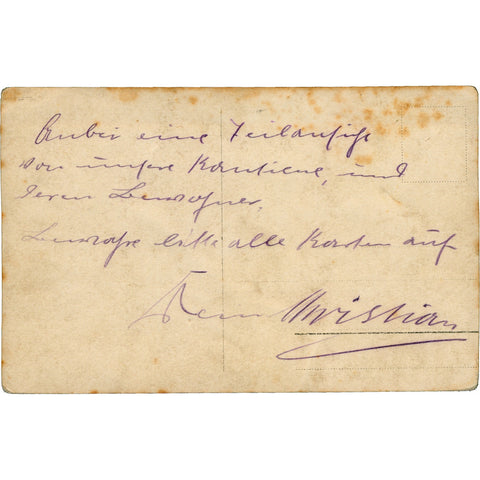 Anbei eine Teilansicht
von unsere Kantiene, und
deren Bewohner.
Bewahre bitte alle Karten auf
Dein Christian